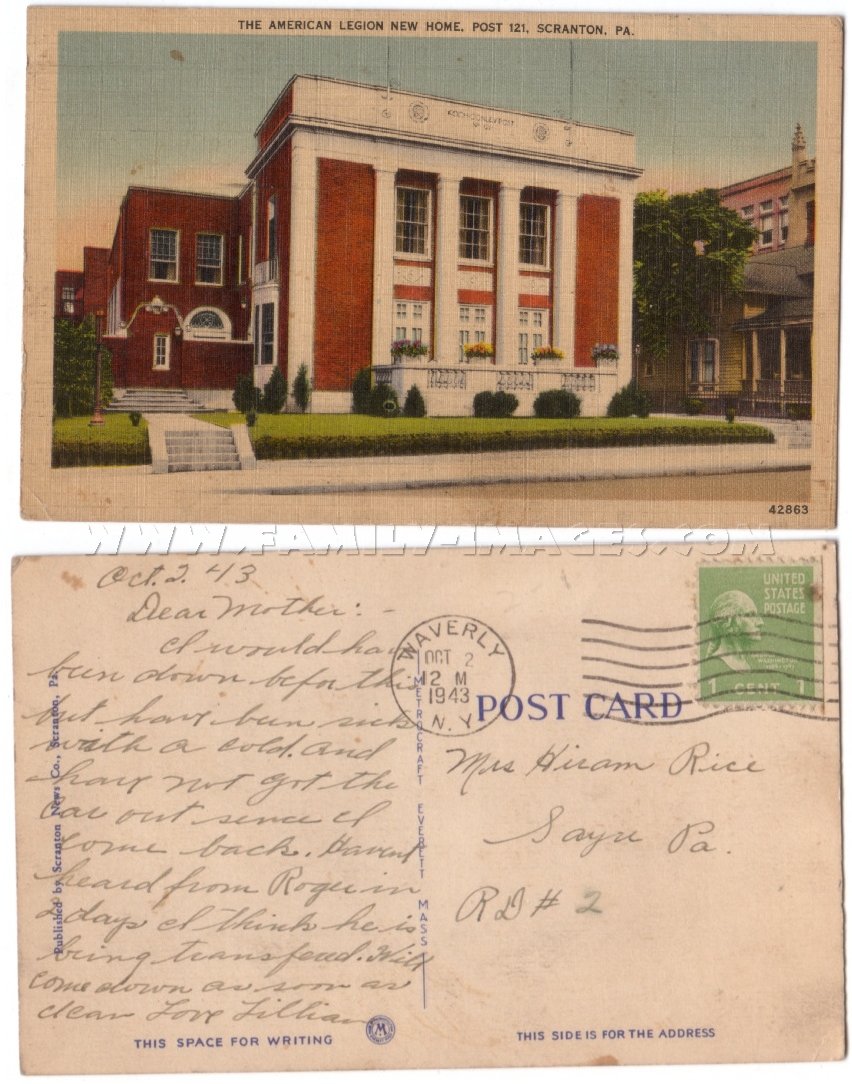 THE AMERICAN LEGION NEW HOME, POST 121, SCRANTON, PA.
42863
WWW.FAMILY-IMAGES.COM
Oct. 2. 43
Dear Mother: -
I would hav
been down befor this
but have been sick
with a cold. and
have not got the
car out sence I
come back. Havent
heard from Roger in
2 days I think he is
being transfered. Will
come down as soon as
clear Love Lillian
Published by Scranton News Co., Scranton, Pa.
THIS SPACE FOR WRITING
M
METROCRAFT EVERETT MASS
WAVERLY
OCT 2
12 M
1943
N.Y.
UNITED
STATES
POSTAGE
WASHINGTON
1 CENT 1
POST CARD
Mrs Hiram Rice
Sayre Pa.
RD # 2
THIS SIDE IS FOR THE ADDRESS